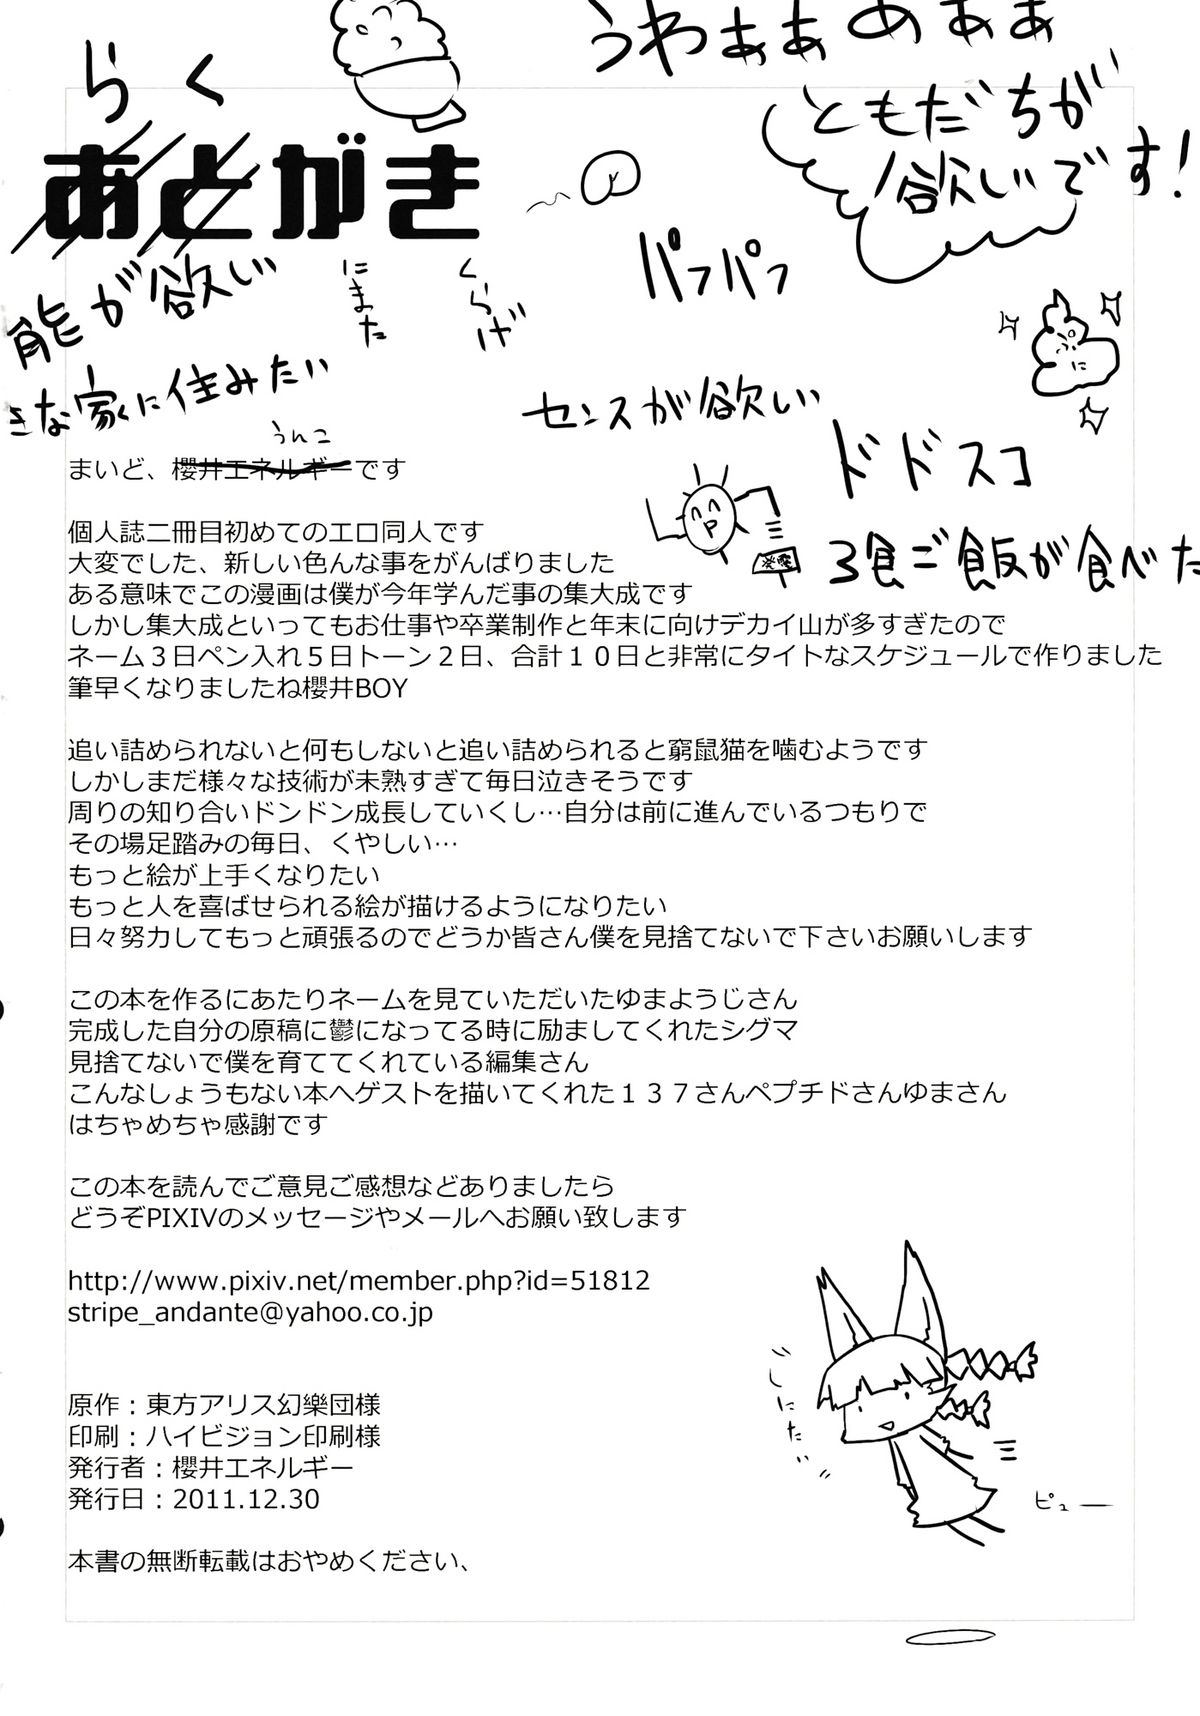 うわぁぁあぁぁ
らく
ともだちが
欲しいです！
あとがき
パフパフ
能が欲しい
にまた
くらげ
きな家に住みたい
センスが欲しい
うんこ
ドドスコ
まいど、櫻井エネルギーです
3食ご飯が食べた
個人誌二冊目初めてのエロ同人です
大変でした、新しい色んな事をがんばりました
ある意味でこの漫画は僕が今年学んだ事の集大成です
しかし集大成といってもお仕事や卒業制作と年末に向けデカイ山が多すぎたので
ネーム３日ペン入れ５日トーン２日、合計１０日と非常にタイトなスケジュールで作りました
筆早くなりましたね櫻井BOY
追い詰められないと何もしないと追い詰められると窮鼠猫を噛むようです
しかしまだ様々な技術が未熟すぎて毎日泣きそうです
周りの知り合いドンドン成長していくし…自分は前に進んでいるつもりで
その場足踏みの毎日、くやしい…
もっと絵が上手くなりたい
もっと人を喜ばせられる絵が描けるようになりたい
日々努力してもっと頑張るのでどうか皆さん僕を見捨てないで下さいお願いします
この本を作るにあたりネームを見ていただいたゆまようじさん
完成した自分の原稿に鬱になってる時に励ましてくれたシグマ
見捨てないで僕を育ててくれている編集さん
こんなしょうもない本へゲストを描いてくれた１３７さんペプチドさんゆまさん
はちゃめちゃ感謝です
この本を読んでご意見ご感想などありましたら
どうぞPIXIVのメッセージやメールへお願い致します
http://www.pixiv.net/member.php?id=51812
stripe_andante@yahoo.co.jp
原作：東方アリス幻樂団様
印刷：ハイビジョン印刷様
発行者：櫻井エネルギー
発行日：2011.12.30
"しにたい"
ピュー
本書の無断転載はおやめください、